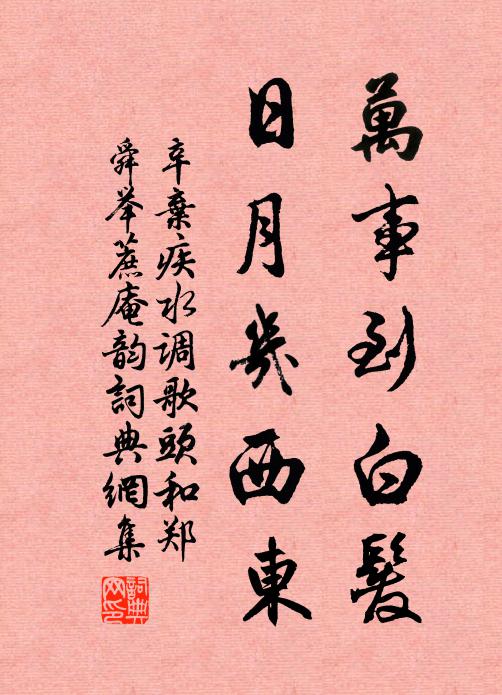 萬事到白髮
日月幾西東
辛棄疾水调歌頭和郑
舜举蔗庵韵詞典網集
詞典网印